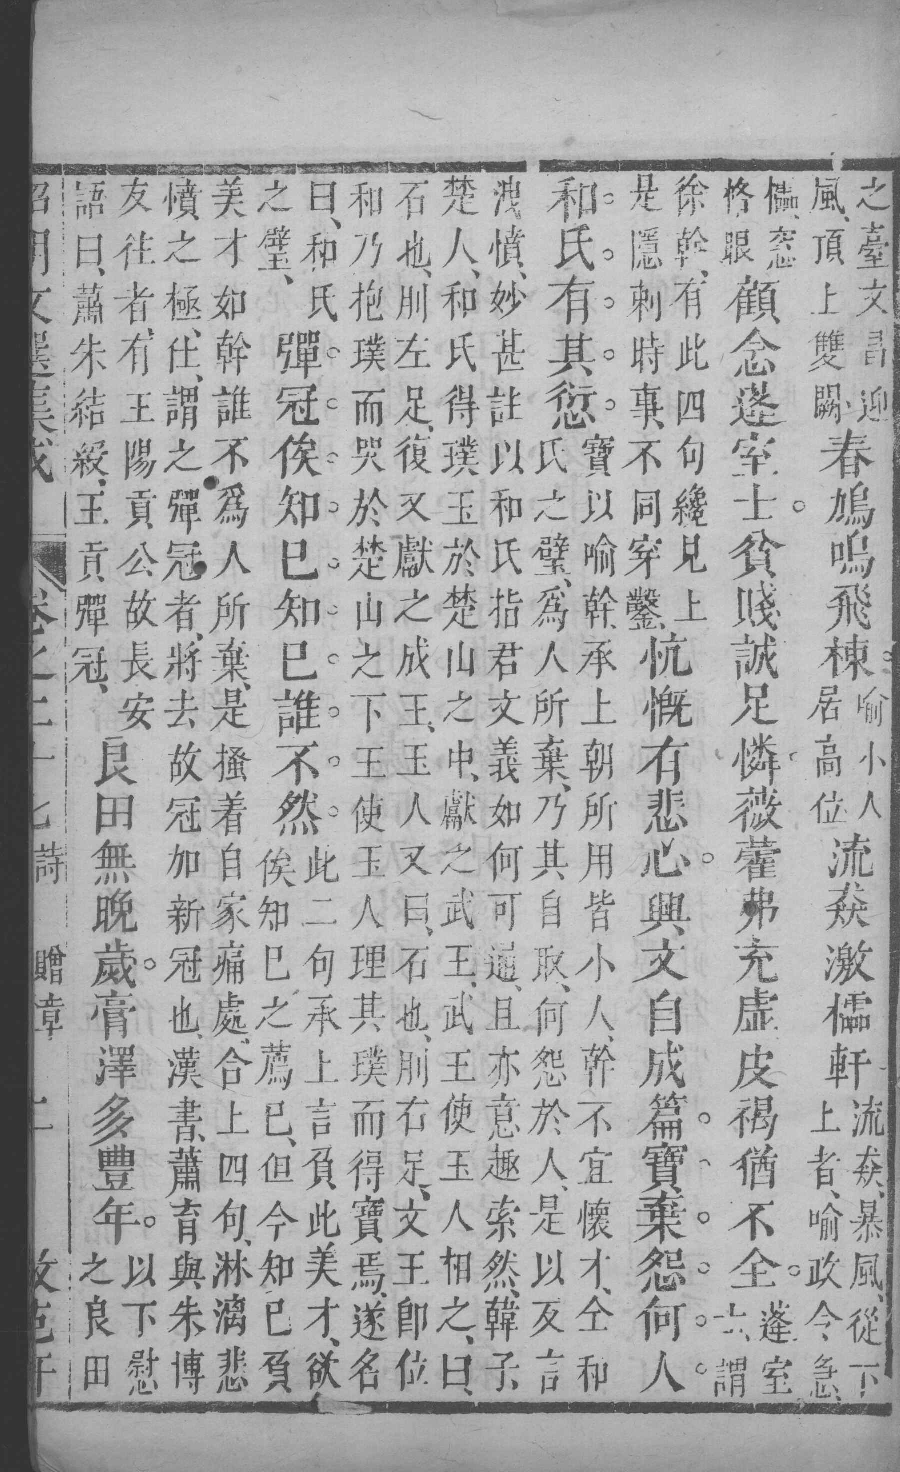 之臺文昌迎風頂上雙闕春鳩鳴飛棟喻小人居高位流猋激櫺軒流猋、暴風、從下上者、喻政令急、
櫺、窓格眼顧念蓬室士。貧賤誠足憐薇藿弗充虛皮褐猶不全。蓬室士、謂
徐幹、有此四句纔見上是隱刺時事、不同穿鑿、忼慨有悲心。興文自成篇。寶棄怨何人
和氏有其愆。寶以喻幹、承上朝所用皆小人、幹不宜懷才、仝和氏之璧、爲人所棄、乃其自取、何怨於人、是以反言
洩憤、妙甚註以和氏指君文義如何可通、且亦意趣索然、韓子、楚人、和氏得璞玉於楚山之中、獻之武王、武王使玉人相之、曰、
石也、刖左足、復又獻之成王、王人又曰、石也、刖右足、文王卽位和乃抱璞而哭於楚山之下王使玉人理其璞而得寶焉、遂名
曰、和氏之璧、彈冠俟知已知已誰不然。此二句承上言負此美才、欲俟知已之薦已、但今知已負
美才如幹誰不爲人所棄、是搔着自家痛處、合上四句、淋漓悲憤之極、仕、謂之彈冠者、將去故冠加新冠也、漢書、蕭育與朱博
友、往者、有王陽貢公故長安語曰、蕭朱結綬、王貢彈冠、良田無晚歲。膏澤多豐年。以下慰之良田
昭明文選集成 卷之二十七 詩 贈章 二